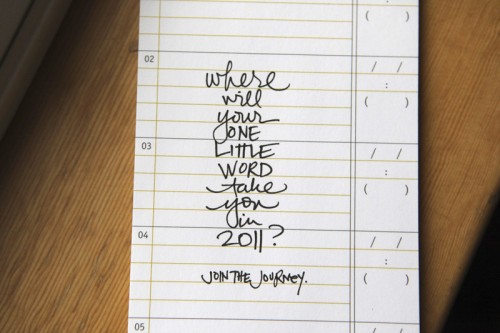 ( )
/ /
02
:
where
will
( )
your
ONE
03
LITTLE
/ /
WORD
:
take
( )
you
in
04
2011?
/ /
:
JOIN THE JOURNEY.
( )
05